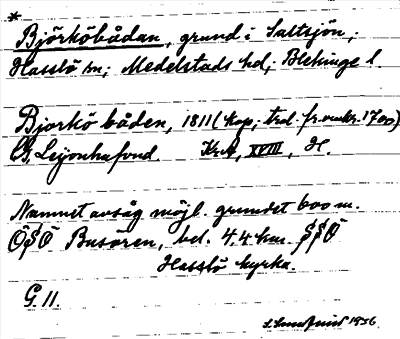 *
Björköbådan, grund i Saltsjön,
Hasslö sn; Medelstads hd; Blekinge l.
Bjorkö båden, 1811 (kop; trol. fr. omkr. 1700)
CG Leijonhufvud. KrA, XVIII, H.
Namnet avsåg möjl. grundet 600 m.
ÖSÖ Busören, bel. 4,4 km. SSÖ
Hasslö kyrka.
G. 11.
1956